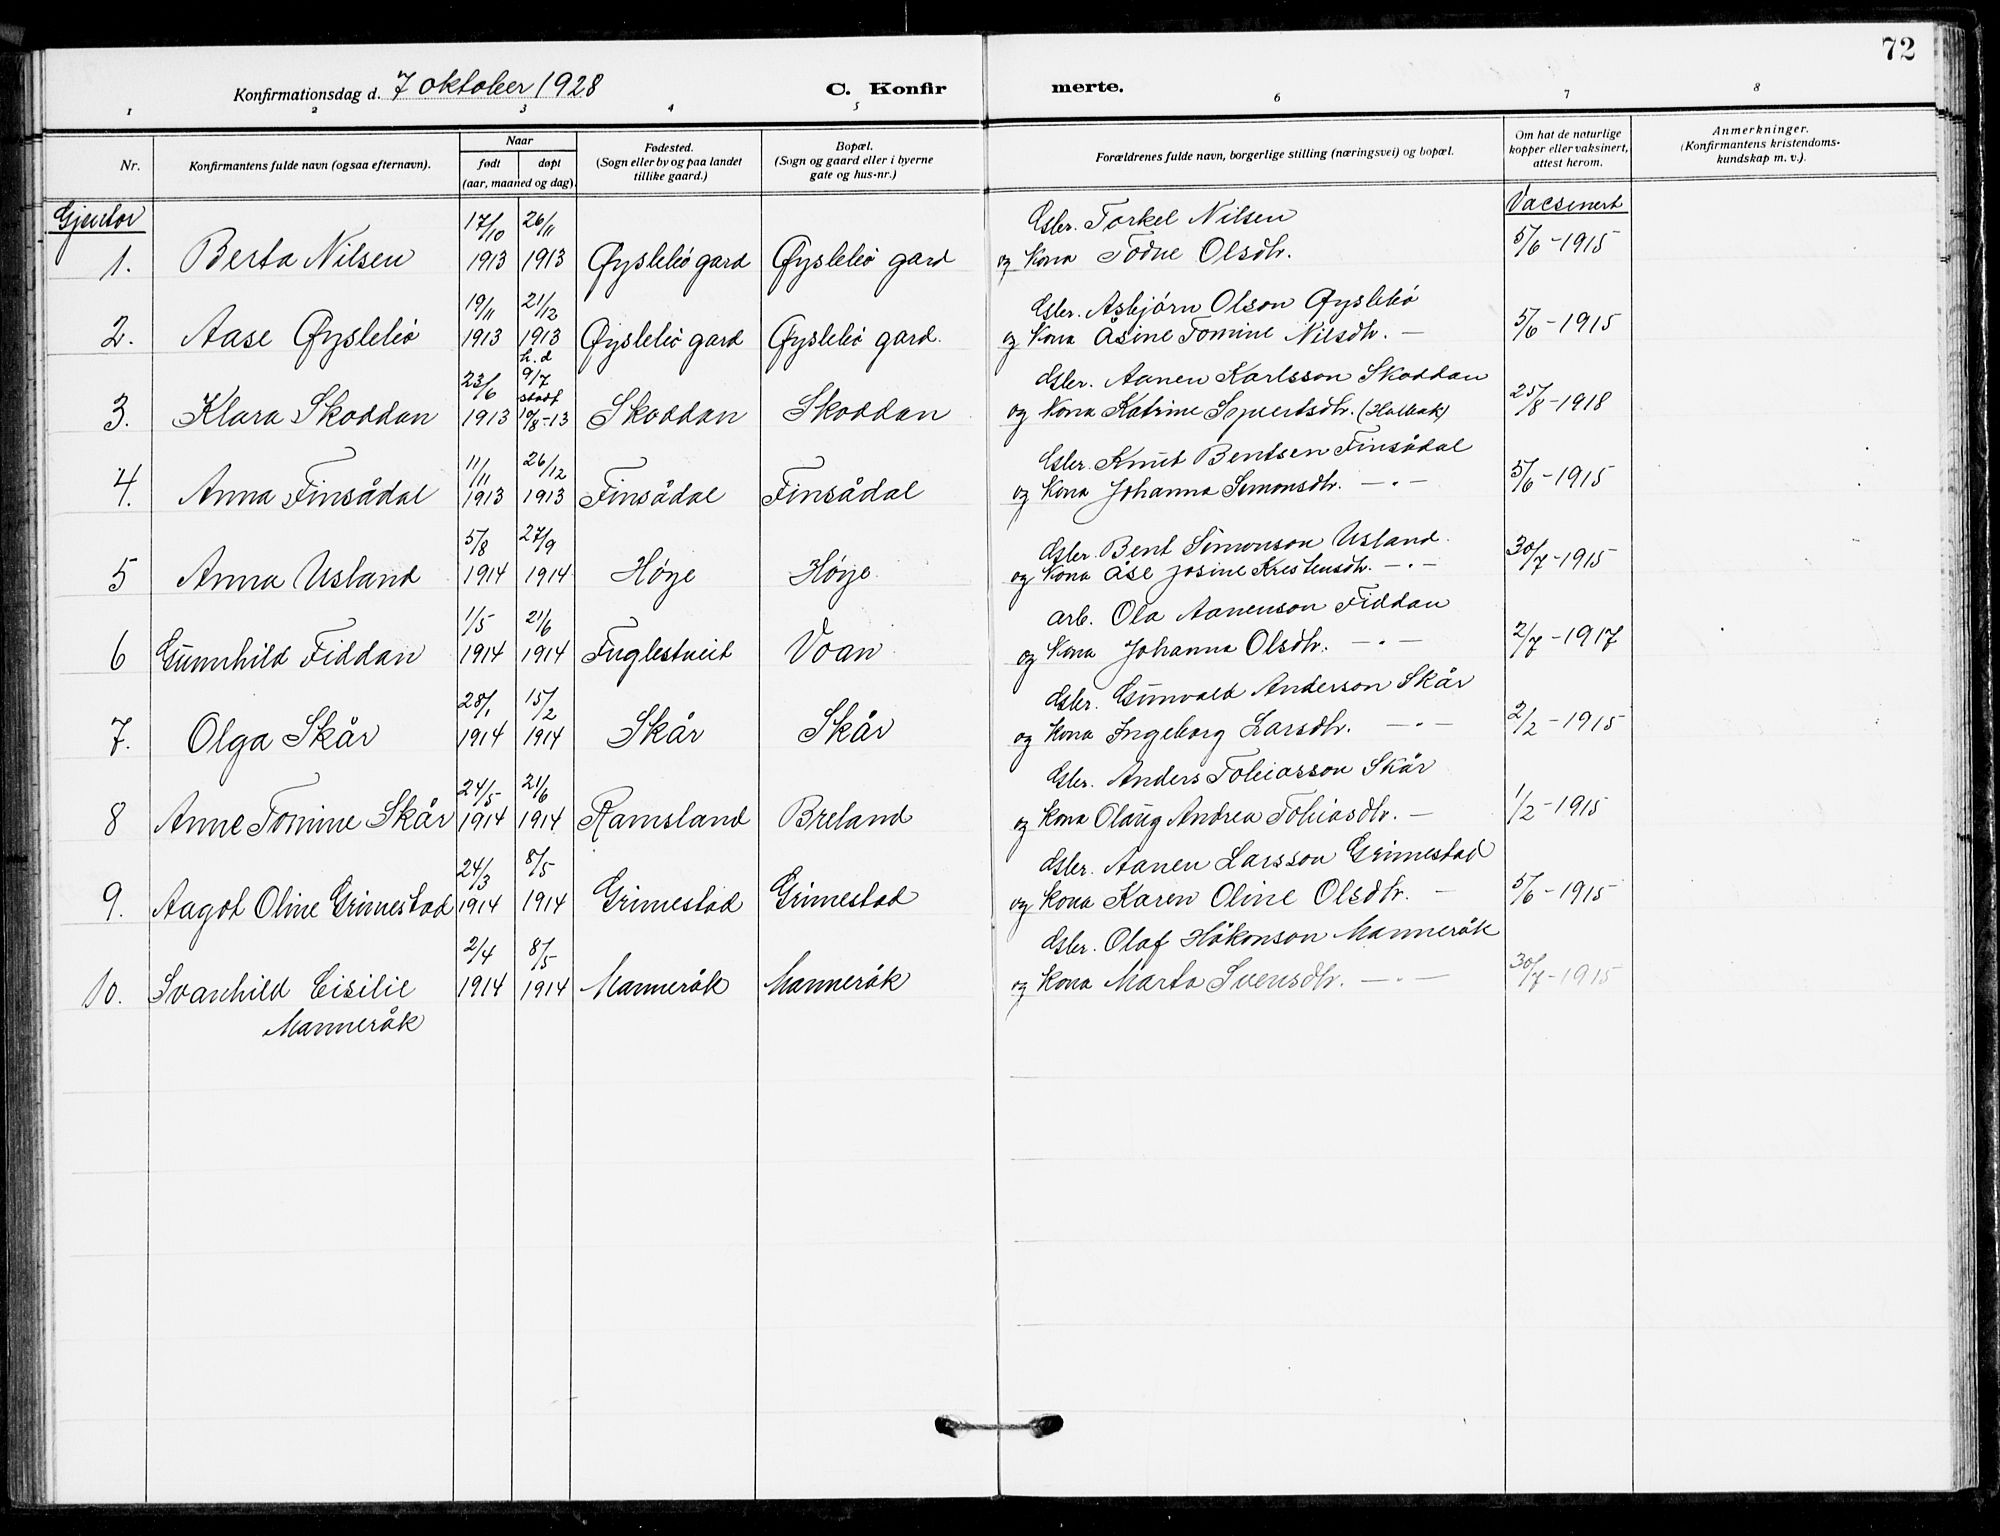 72
Konfirmationsdag d. 7 oktober 1928 C. Konfir merte.
1 2 3 4 5 6 7 8
Nr. Konfirmantens fulde navn (ogsaa efternavn). Naar født døpt (aar, maaned og dag). Fødested. (Sogn eller by og paa landet tillike gaard.) Bopæl. (Sogn og gaard eller i byerne gate og hus-nr.) Forældrenes fulde navn, borgerlige stilling (næringsvei) og bopæl. Om hat de naturlige kopper eller vaksinert, attest herom. Anmerkninger. (Konfirmantens kristendoms-kundskap m. v.).
Gjentor Vacsinert
17/10 26/11 Gbr. Torkel Nilsen
1. Berta Nilsen 1913 1913 Øyslebö gard Øyslebö gard og Kona Todne Olsdtr. 5/6-1915
19/11 21/12 Gbr. Asbjörn Olson Øyslebö
2. Aase Øyslebö 1913 1913 Øyslebö gard Øyslebö gard. og Kona Åsine Tomine Nilsdtr. — 5/6-1915
h. d
23/6 9/7 Gbr. Aanen Karlsson Skoddan
stadf
3. Klara Skoddan 1913 10/8-13 Skoddan Skoddan og Kona Katrine Syvertsdtr. (Holbæk) 25/8-1918
11/11 26/12 Gbr. Knut Bentsen Finsådal
4. Anna Finsådal 1913 1913 Finsådal Finsådal og Kona Johanna Simonsdtr. — " — 5/6-1915
5/8 27/9 Gbr. Bent Simonson Usland.
5 Anna Usland 1914 1914 Höye Höye og Kona Åse Josine Kristensdtr. — " — 30/7-1915
1/5 21/6 arb. Ola Aanenson Fiddan
6 Gunnhild Fiddan 1914 1914 Fuglestveit Voan og Kona Johanna Olsdtr. — " — 2/7-1917
28/1 15/2 Gbr. Gunvald Anderson Skår
7. Olga Skår 1914 1914 Skår Skår og Kona Ingeborg Larsdtr. — " — 2/2-1915
24/5 21/6 Gbr. Anders Tobiasson Skår
8 Anne Tomine Skår 1914 1914 Ramsland Breland og Kona Olaug Andrea Tobiasdtr. — 1/2-1915
24/3 8/5 Gbr. Aanen Larsson Grimestad
9. Aagot Oline Grimestad 1914 1914 Grimestad Grimestad og Kona Karen Oline Olsdtr. — 5/6-1915
2/4 8/5 Gbr. Olaf Håkonson Manneråk
10. Svanhild Cisilie 1914 1914 Manneråk Manneråk og Kona Marta Svensdtr. — " — 30/7-1915
Manneråk